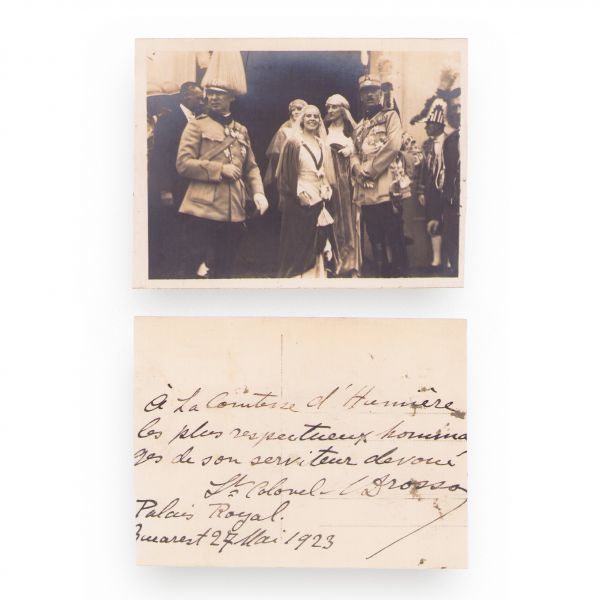 À La Comtesse d'Humière
les plus respectueux homma
ges de son serviteur devoué
Lt Colonel Drosso
Palais Royal.
Bucarest 27 Mai 1923